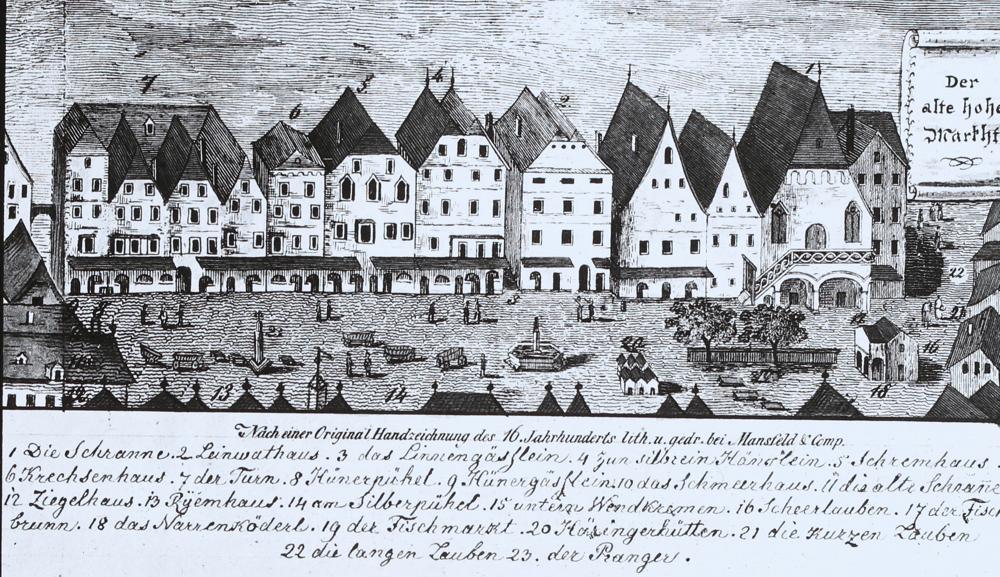 Der
alte hohe
Markht
Nach einer Original Handzeichnung des 16. Jahrhunderts lith. u. gedr. bei Mansfeld & Comp.
1 Die Schranne. 2 Leinwathaus. 3 das Linnengässlein. 4 zun silbrein Känntlein. 5 Schremhaus.
6 Krechsenhaus. 7 der Turn. 8 Hünerpühel. 9 Hünergässlein. 10 das Schmeerhaus. 11 die alte Schrane
12 Ziegelhaus. 13 Ryemhaus. 14 am Silberpühel. 15 untern Wendkremen. 16 Scheerlauben. 17 der Fisch
brunn. 18 das Narrenköderl. 19 der Fischmarkt. 20 hütten. 21 die Kurzen Lauben
22 die langen Lauben 23. der Pranger.